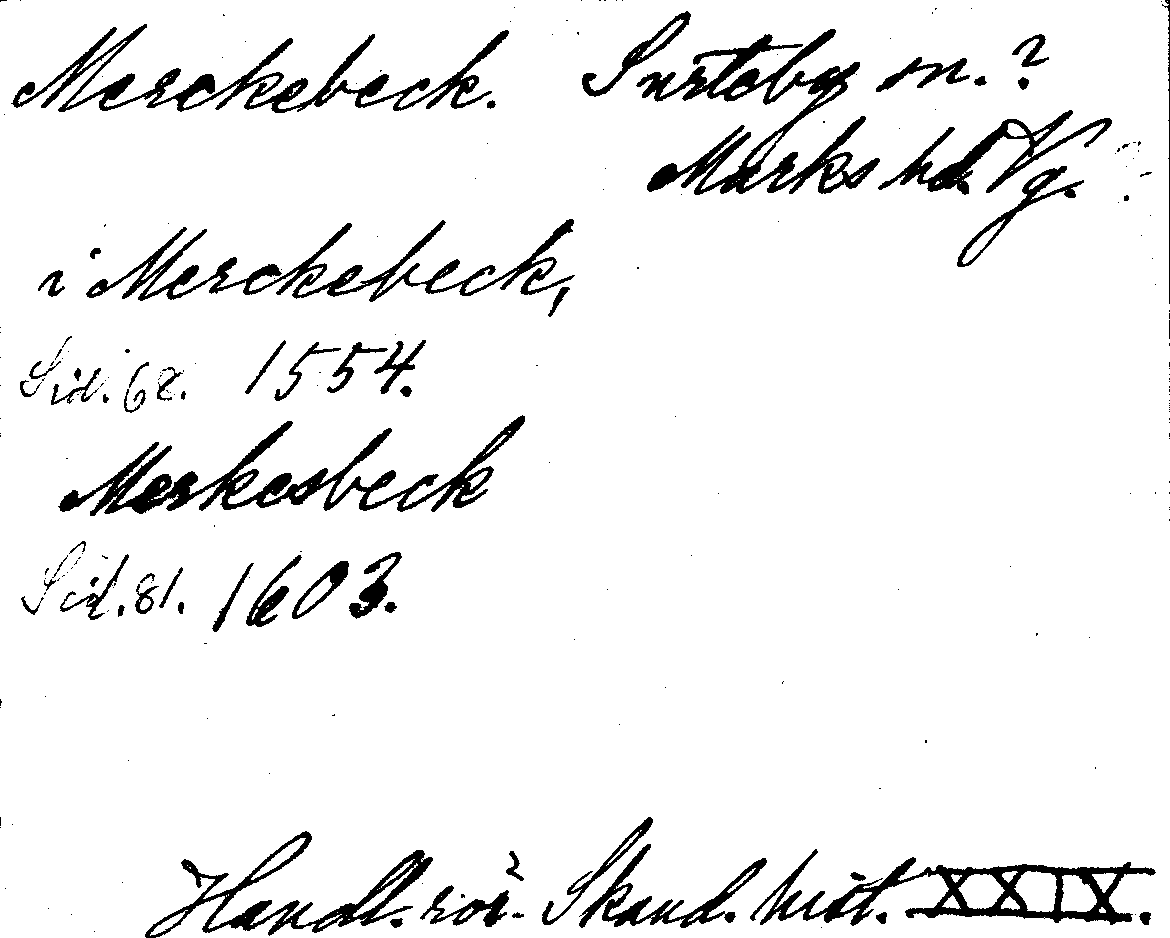 Merckebeck. Surteby sn.?
Marks hd. Vg. ?
i Merckebeck,
Sid. 68. 1554.
Merkesbeck
Sid. 81. 1603.
Handl. rör. Skand. hist. XXIX.